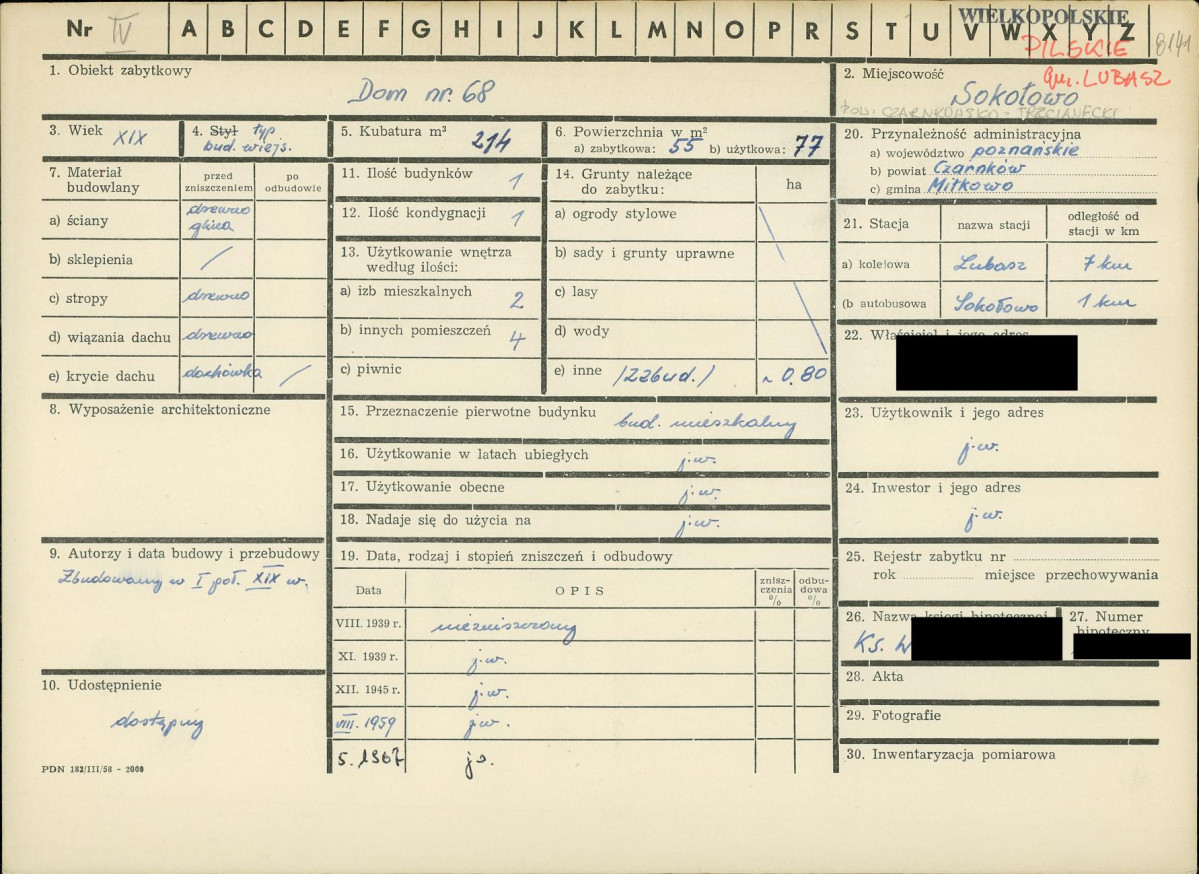 Nr IV A B C D E F G H I J K L M N O P R S T U V W X Y Z
WIELKOPOLSKIE
PILSKIE
8141
gm. LUBASZ
1. Obiekt zabytkowy
Dom nr. 68
2. Miejscowość
Sokołowo
POW. CZARNKOWSKO-TRZCIANECKI
3. Wiek XIX
4. Styl typ
bud. wiejs.
5. Kubatura m³ 214
6. Powierzchnia w m²
a) zabytkowa: 55 b) użytkowa: 77
7. Materiał
budowlany
przed
zniszczeniem
po
odbudowie
a) ściany drzewo
glina
b) sklepienia /
c) stropy drzewo
d) wiązania dachu drzewo
e) krycie dachu dachówka /
8. Wyposażenie architektoniczne
9. Autorzy i data budowy i przebudowy
Zbudowany w I poł. XIX w.
10. Udostępnienie
dostępny
PDN 182/III/58 - 2000
11. Ilość budynków 1
12. Ilość kondygnacji 1
13. Użytkowanie wnętrza
według ilości:
a) izb mieszkalnych 2
b) innych pomieszczeń 4
c) piwnic
14. Grunty należące
do zabytku:
ha
a) ogrody stylowe
b) sady i grunty uprawne
c) lasy
d) wody
e) inne /zabud./ ~ 0,80
15. Przeznaczenie pierwotne budynku
bud. mieszkalny
16. Użytkowanie w latach ubiegłych
j.w.
17. Użytkowanie obecne j.w.
18. Nadaje się do użycia na j.w.
19. Data, rodzaj i stopień zniszczeń i odbudowy
Data
OPIS
znisz-
czenia
%
odbu-
dowa
%
VIII. 1939 r. niezniszczony
XI. 1939 r. j.w.
XII. 1945 r. j.w.
VIII. 1959 j.w.
5. 1967 j.
20. Przynależność administracyjna
a) województwo poznańskie
b) powiat Czarnków
c) gmina Miłkowo
21. Stacja
nazwa stacji
odległość od
stacji w km
a) kolejowa Lubasz 7 km
(b autobusowa Sokołowo 1 km
22. Właściciel i jego adres
23. Użytkownik i jego adres
j.w.
24. Inwestor i jego adres
j.w.
25. Rejestr zabytku nr
rok miejsce przechowywania
26. Nazwa księgi hipotecznej
Ks. W
27. Numer
hipoteczny
28. Akta
29. Fotografie
30. Inwentaryzacja pomiarowa